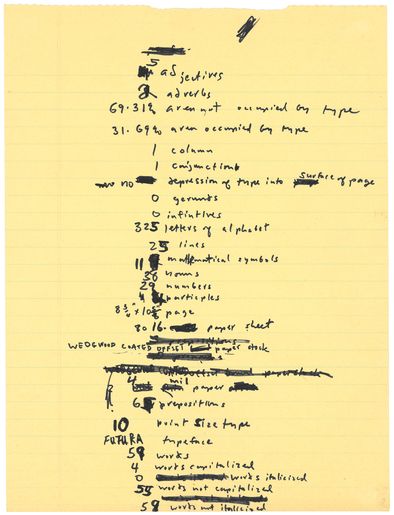 5 adjectives
2 adverbs
69.31% area not occupied by type
31.69% area occupied by type
1 column
1 conjunction
no depression of type into surface of page
0 gerunds
0 infinitives
325 letters of alphabet
25 lines
11 mathematical symbols
38 nouns
29 numbers
4 participles
8 ½ × 10 ½ page
80 16. paper sheet
WEDGWOOD COATED OFFSET paper stock
4 mil paper
6 prepositions
10 point size type
FUTURA typeface
59 words
4 words capitalized
0 words italicized
55 words not capitalized
59 words not italicized